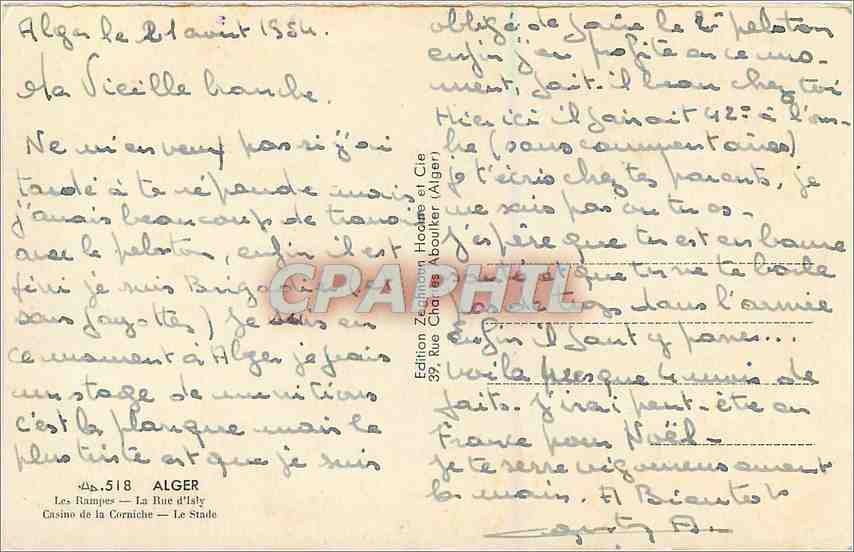 Alger le 21 août 1954.
Ma Vieille branche.
Ne m'en veux pas si j'ai
tardé à te répondre mais
j'avais beaucoup de travail
avec le peloton, enfin il est
fini je suis Brigadier (
sans ) Je suis en
ce moment à Alger je fais
un stage de munitions
c'est la planque mais le
plus triste est que je suis
obligé de faire le 2e peloton
enfin j'en profite en ce mo-
ment, fait-il beau chez toi
Hier ici il faisait 42° à l'om-
bre (sans commentaires)
je t'écris chez tes parents, je
ne sais pas où tu es-
J'espère que tu est en bonne
santé et que tu ne te
pas de trop dans l'armée
Enfin il faut y passer...
voilà presque 4 mois de
faits. J'irai peut-être en
France pour Noël-
Je te serre vigoureusement
la main. A Bientôt
Edition Zeghnoun Hocine et Cie
39, Rue Charles Aboulker (Alger)
CPARHTL
518 ALGER
Les Rampes — La Rue d'Isly
Casino de la Corniche — Le Stade